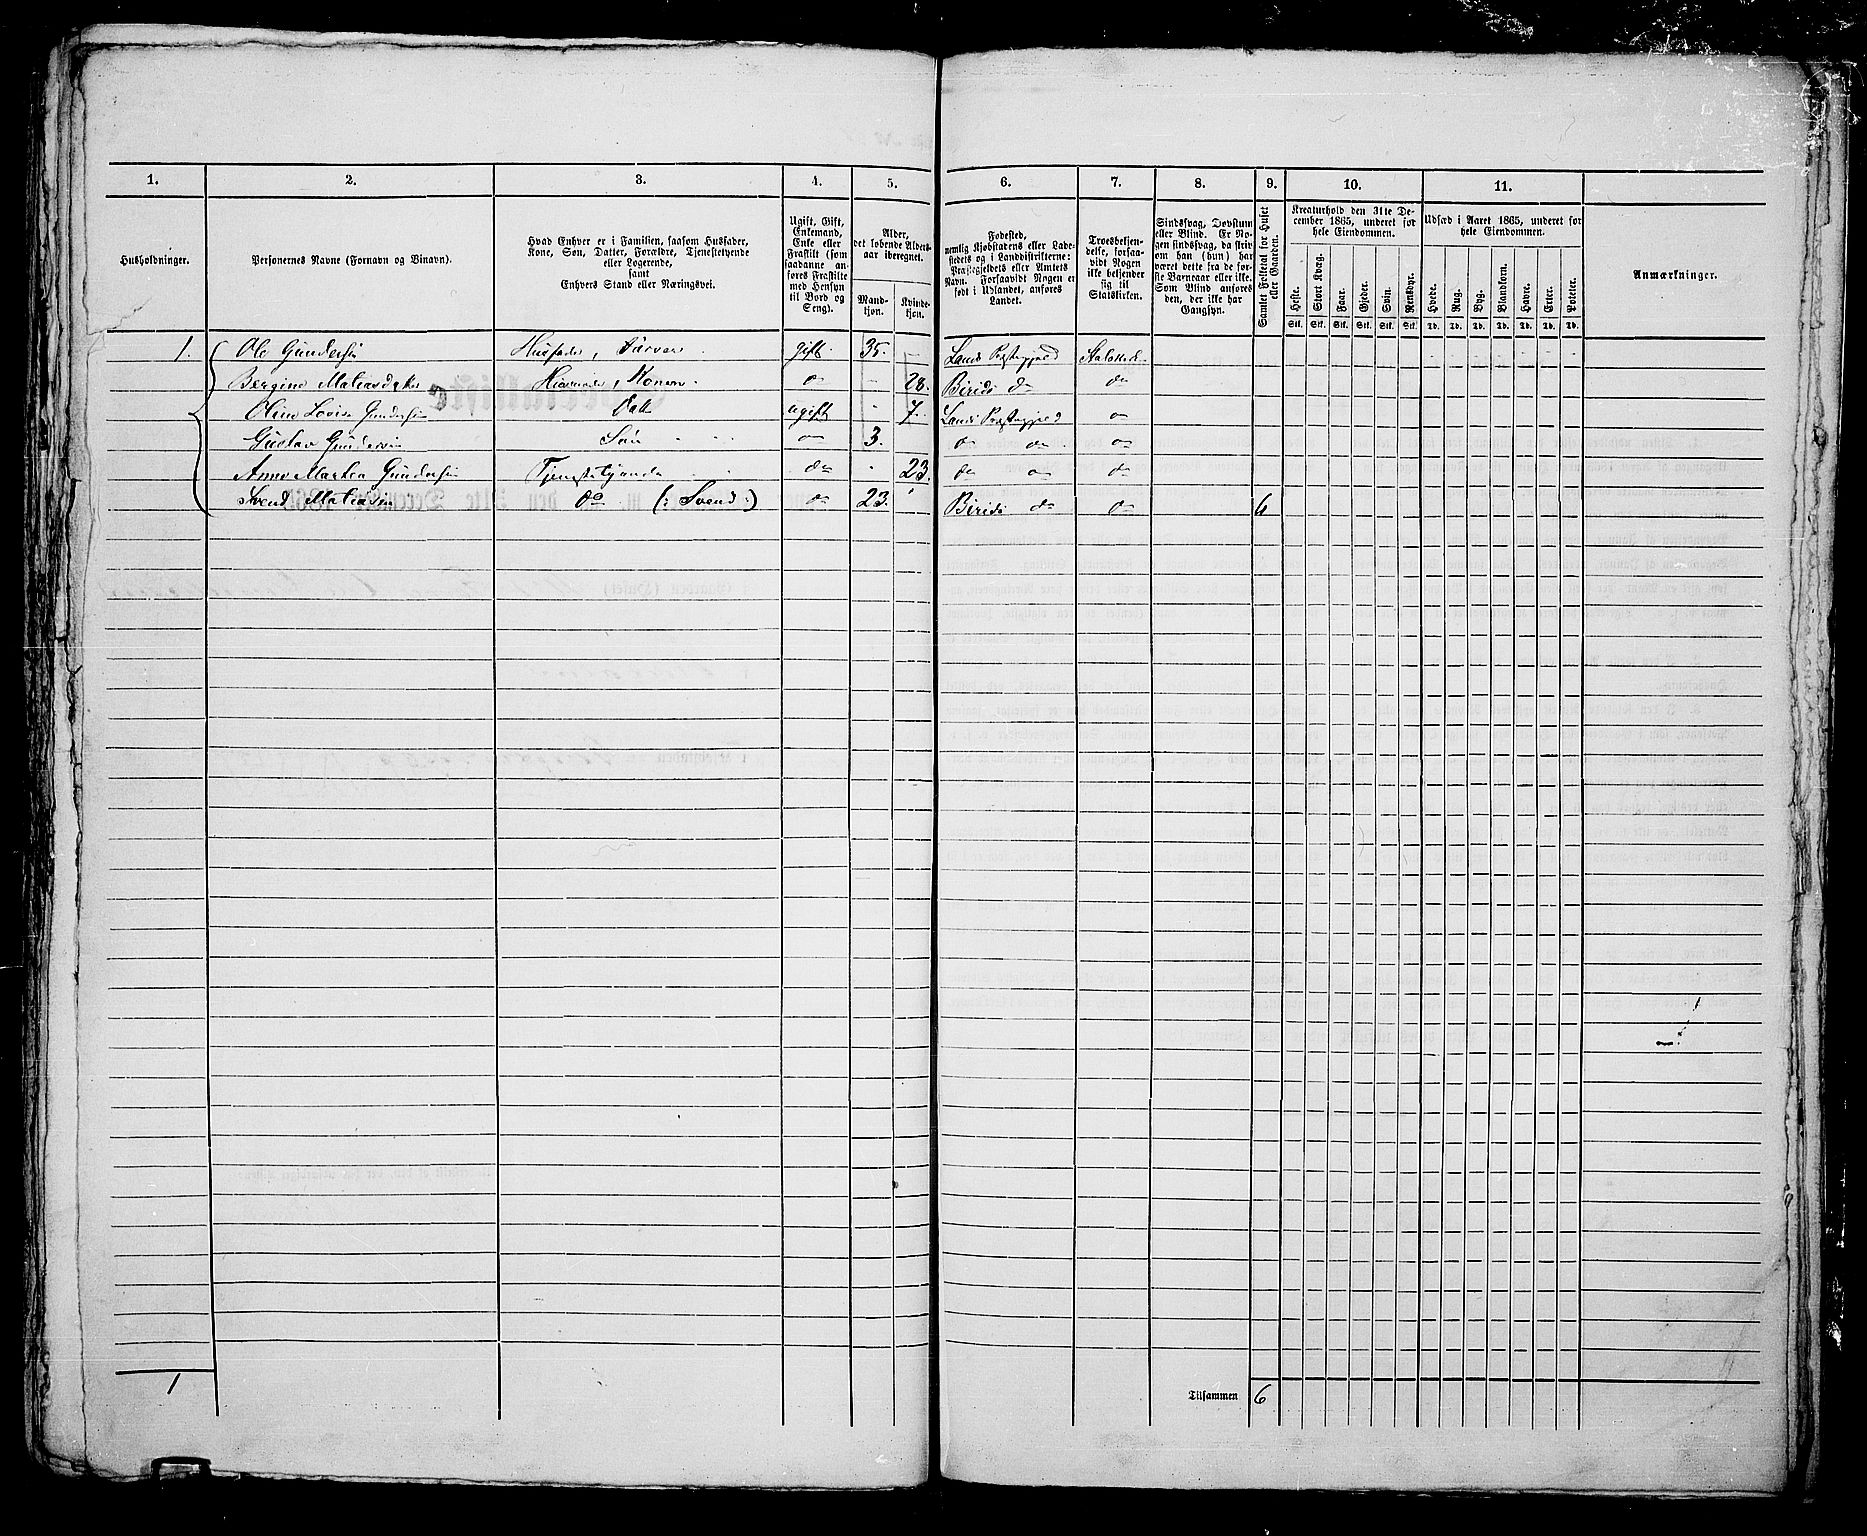 1. 2. 3. 4. 5. 6. 7. 8. 9. 10. 11.
Husholdninger.
Personernes Navne (Fornavn og Binavn).
Hvad Enhver er i Familien, saasom Husfader,
Kone, Søn, Datter, Forældre, Tjenestetyende
eller Logerende,
samt
Enhvers Stand eller Næringsvei.
Ugift, Gift,
Enkemand,
Enke eller
Fraskilt (som
saadanne an-
føres Fraskilte
med Hensyn
til Bord og
Seng).
Alder,
det løbende Alders-
aar iberegnet.
Mand-
kjøn.
Kvinde-
kjøn.
Fødested,
nemlig Kjøbstadens eller Lade-
stedets og i Landdistrikterne:
Præstegjeldets eller Amtets
Navn. Forsaavidt Nogen er
født i Udlandet, anføres
Landet.
Troesbekjen-
delse, forsaa-
vidt Nogen
ikke bekjender
sig til
Statskirken.
Sindssvag, Døvstum
eller Blind. Er No-
gen sindssvag, da skriv
om han (hun) har
været dette fra de før-
ste Barneaar eller ikke.
Som Blind anføres
den, der ikke har
Gangsyn.
Samlet Folketal for Huset
eller Gaarden.
Kreaturhold den 31te De-
cember 1865, underet for
hele Eiendommen.
Heste. Stort Kvæg. Faar. Gjeder. Svin. Rensdyr.
Stk. Stk. Stk. Stk. Stk. Stk.
Udsæd i Aaret 1865, underet for
hele Eiendommen.
Hvede. Rug. Byg. Blandkorn. Havre. Erter. Poteter.
Td. Td. Td. Td. Td. Td. Td.
Anmærkninger.
1. Ole Gundersen Husfader, Farver gift 35. Lands Præstegjeld Statskirk
Bergine Matiasdatter Huusmoder, Konen do 28. Birids do do
Oline Lovise Gundersen Datt ugift 7. Lands Præstegjeld do
Gustav Gundersen Søn do 3. do do do
Anne Martea Gundersen Tjenestetyende do 23. do do do
Svend Matiassen do (: Svend :) do 23. Birids do do 6
1
Tilsammen 6